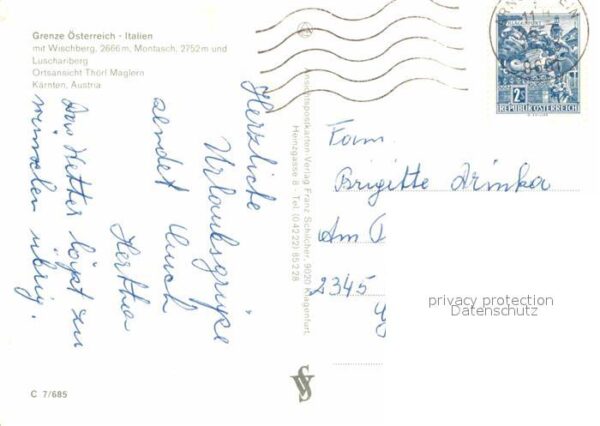 Grenze Österreich - Italien
mit Wischberg, 2666 m, Montasch, 2752 m und
Luschariberg
Ortsansicht Thörl Maglern
Kärnten, Austria
Herzliche
Urlaubsgrüße
sendet Euch
Hertha
Das Wetter läßt zu
wünschen übrig.
C 7/685
Ansichtspostkarten Verlag Franz Schilcher, 9020 Klagenfurt,
Heinzgasse 8 - Tel. (0 42 22) 85 2 28
KLAGENFURT
2S
REPUBLIK ÖSTERREICH
Fam.
Brigitte Arinka
Am
2345
privacy protection
Datenschutz